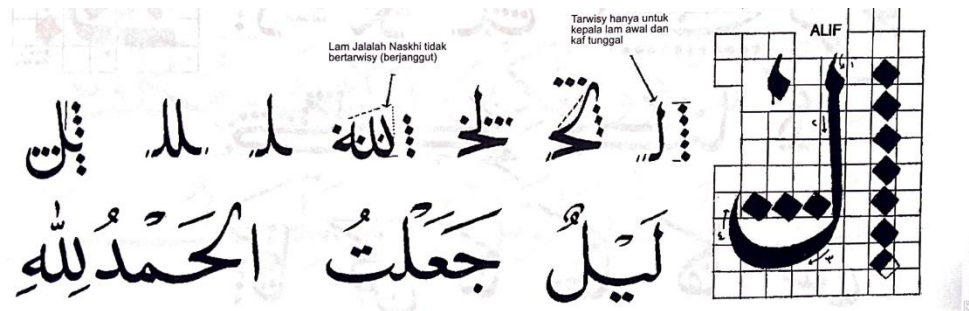 Lam Jalalah Naskhi tidak
bertarwisy (berjanggut)
Tarwisy hanya untuk
kepala lam awal dan
kaf tunggal
ALIF
لله
لَيْلٌ جَعَلْتُ الحَمْدُ لِلّٰهِ
١
٢
٣
٤